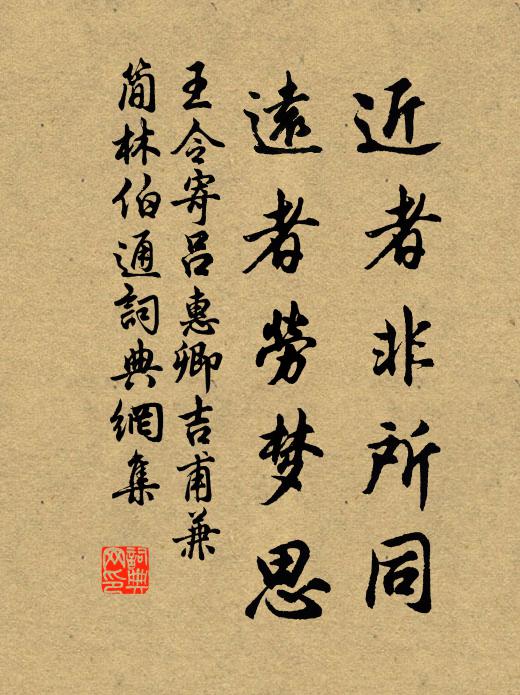 近者非所同
遠者勞梦思
王令寄呂惠卿吉甫兼
简林伯通詞典網集
詞典网印